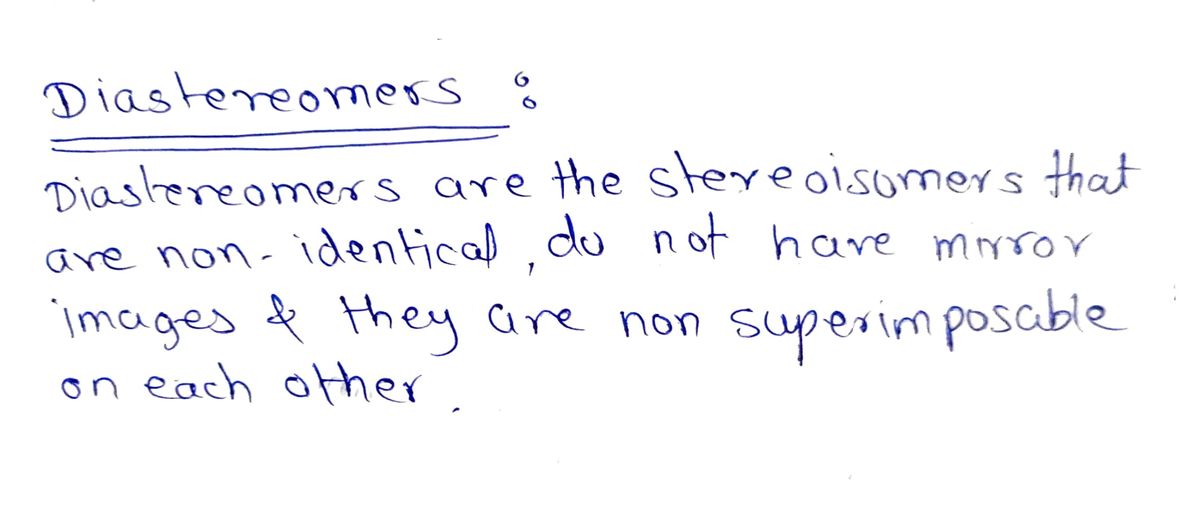 Diastereomers :
Diastereomers are the stereoisomers that
are non-identical, do not have mirror
images & they are non superimposable
on each other.